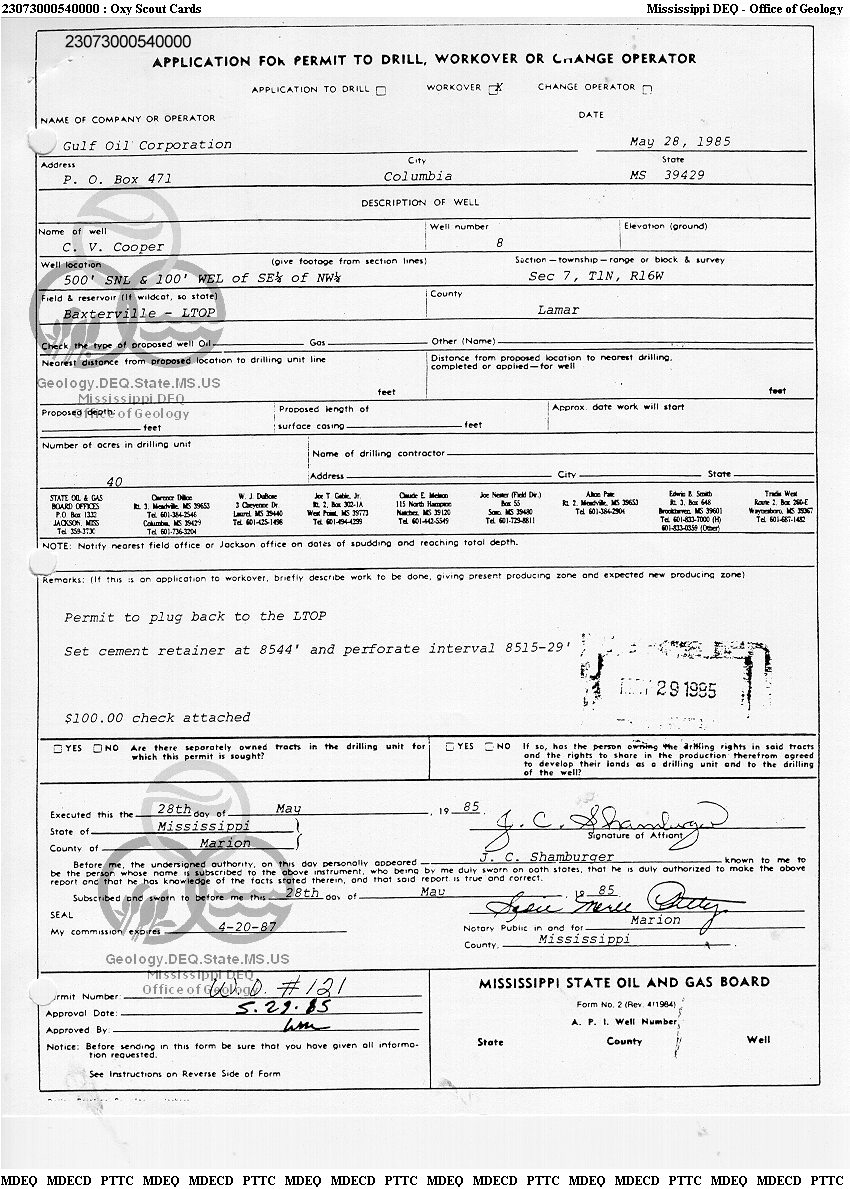 23073000540000 : Oxy Scout Cards Mississippi DEQ - Office of Geology
23073000540000
APPLICATION FOR PERMIT TO DRILL, WORKOVER OR CHANGE OPERATOR
APPLICATION TO DRILL ☐ WORKOVER ☒ CHANGE OPERATOR ☐
NAME OF COMPANY OR OPERATOR DATE
Gulf Oil Corporation May 28, 1985
Address City State
P. O. Box 471 Columbia MS 39429
DESCRIPTION OF WELL
Name of well Well number Elevation (ground)
C. V. Cooper 8
Well location (give footage from section lines) Section—township—range or block & survey
500' SNL & 100' WEL of SE¼ of NW¼ Sec 7, T1N, R16W
Field & reservoir (If wildcat, so state) County
Baxterville - LTOP Lamar
Check the type of proposed well Oil Gas Other (Name)
Nearest distance from proposed location to drilling unit line Distance from proposed location to nearest drilling,
completed or applied—for well
Geology.DEQ.State.MS.US
feet feet
Mississippi DEQ
Office of Geology
Proposed depth: Proposed length of Approx. date work will start
feet surface casing feet
Number of acres in drilling unit Name of drilling contractor
40 Address City State
STATE OIL & GAS Clarence Dillon W. J. DuBose Joe T. Gable, Jr. Claude E. Melson Joe Nester (Field Dir.) Alton Pate Edwin B. Smith Tradis West
BOARD OFFICES Rt. 3, Meadville, MS 39653 3 Cheyenne Dr. Rt. 2, Box 302-1A 115 North Hampton Box 55 Rt. 2, Meadville, MS 39653 Rt. 3, Box 648 Route 2, Box 266-E
P.O. Box 1332 Tel. 601-384-2546 Laurel, MS 39440 West Point, MS 39773 Natchez, MS 39120 Soso, MS 39480 Tel. 601-384-2904 Brookhaven, MS 39601 Waynesboro, MS 39367
JACKSON, MISS Columbia, MS 39429 Tel. 601-425-1498 Tel. 601-494-4299 Tel. 601-442-5549 Tel. 601-729-8811 Tel. 601-833-7000 (H) Tel. 601-687-1482
Tel. 359-3730 Tel. 601-736-3204 601-833-0359 (Other)
NOTE: Notify nearest field office or Jackson office on dates of spudding and reaching total depth.
Remarks: (If this is an application to workover, briefly describe work to be done, giving present producing zone and expected new producing zone)
Permit to plug back to the LTOP
Set cement retainer at 8544' and perforate interval 8515-29'
29 1985
$100.00 check attached
☐ YES ☐ NO Are there separately owned tracts in the drilling unit for which this permit is sought?
☐ YES ☐ NO If so, has the person owning the drilling rights in said tracts
and the rights to share in the production therefrom agreed
to develop their lands as a drilling unit and to the drilling
of the well?
Executed this the 28th day of May , 19 85.
State of Mississippi J. C. Shamburger
Signature of Affiant
County of Marion
Before me, the undersigned authority, on this day personally appeared J. C. Shamburger known to me to
be the person whose name is subscribed to the above instrument, who being by me duly sworn on oath states, that he is duly authorized to make the above
report and that he has knowledge of the facts stated therein, and that said report is true and correct.
Subscribed and sworn to before me this 28th day of May 19 85
SEAL
Notary Public in and for Marion
My commission expires 4-20-87 County, Mississippi
Geology.DEQ.State.MS.US
Mississippi DEQ
Office of Geology
Permit Number: W.D. #121
Approval Date: 5.29.85
Approved By:
Notice: Before sending in this form be sure that you have given all information requested.
See Instructions on Reverse Side of Form
MISSISSIPPI STATE OIL AND GAS BOARD
Form No. 2 (Rev. 4/1984)
A. P. I. Well Number
State County Well
MDEQ MDECD PTTC MDEQ MDECD PTTC MDEQ MDECD PTTC MDEQ MDECD PTTC MDEQ MDECD PTTC MDEQ MDECD PTTC